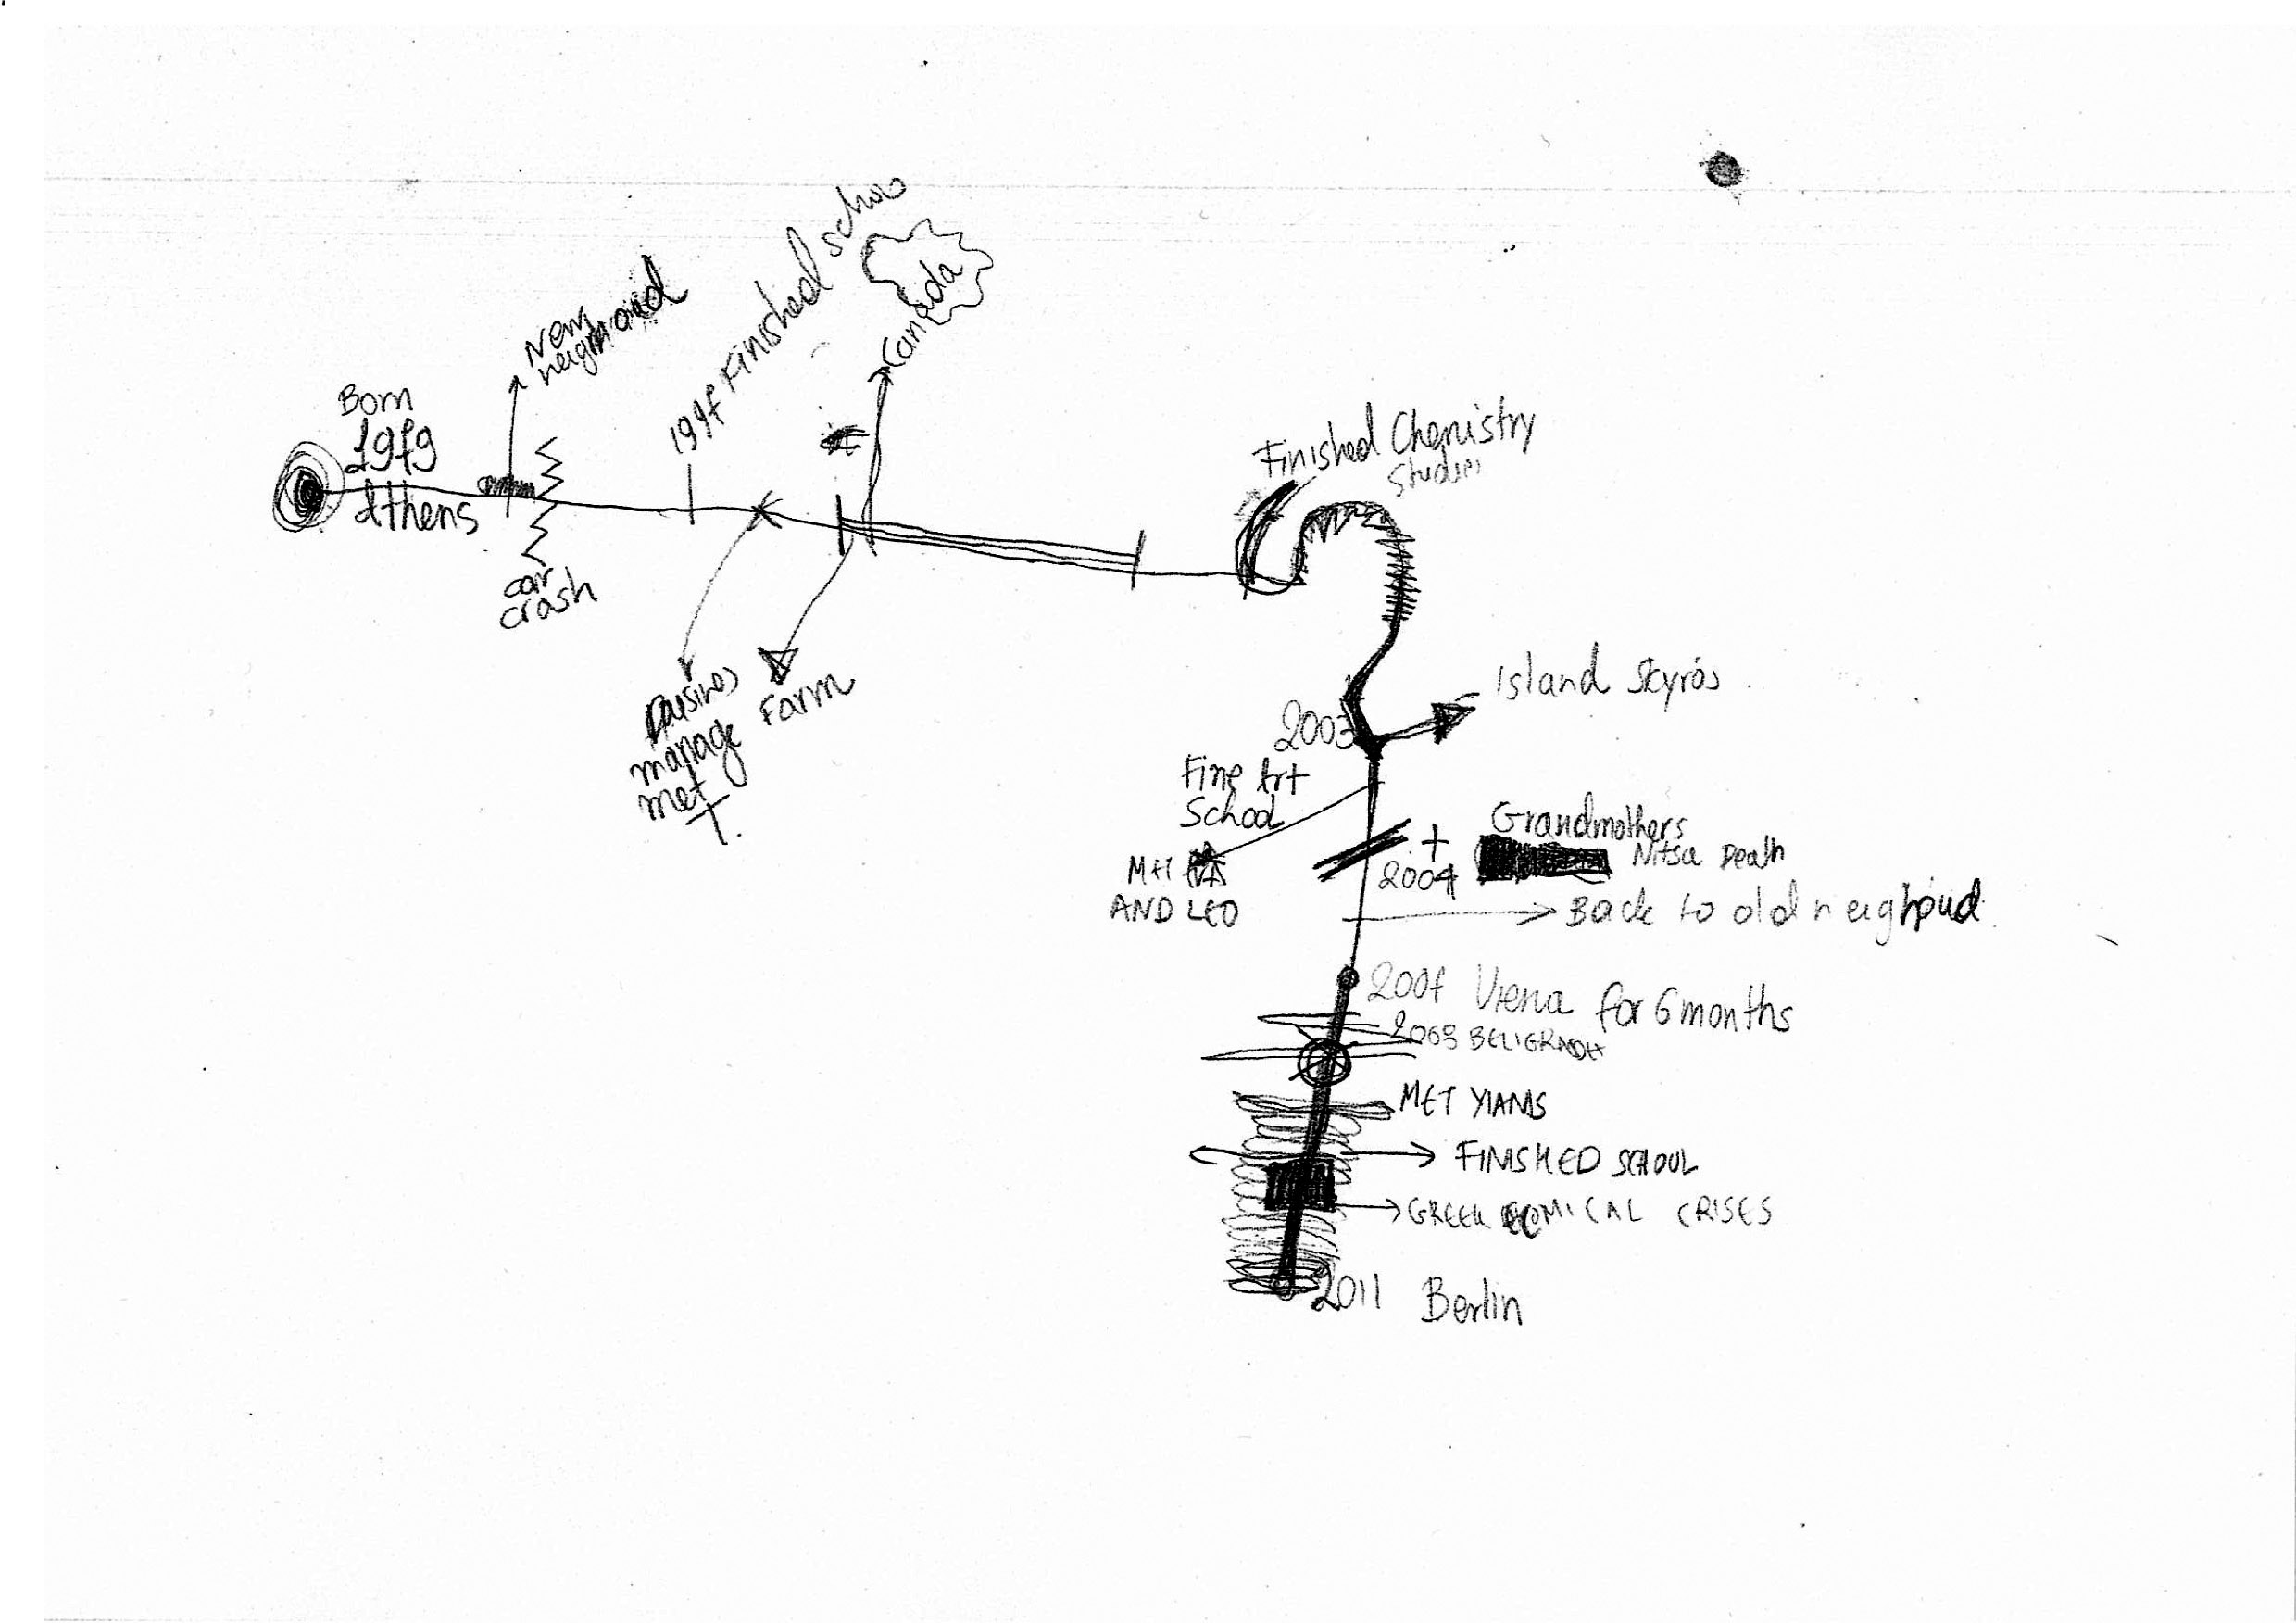 Born
1979
Athens
New
car
crash
1997 Finished schoo
Canada
manage
met
T.
Farm
Finished Chemistry
Studies
2003
Island Skyros
Fine Art
School
AND LEO
Grandmothers
Nitsa Death
2004
Back to old neighbud
2007 Viena for 6 months
BELIGRADH
MET YIANIS
FINISHED SCHOOL
GREEK CRISES
2011 Berlin